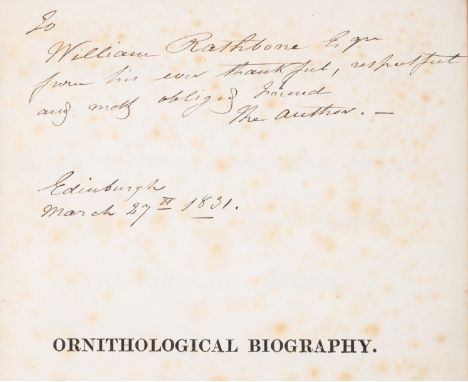 To
William Rathbone Esqr
from his ever thankful, respectful
and most obliged friend
The author. —
Edinburgh
March 27th 1831.
ORNITHOLOGICAL BIOGRAPHY.